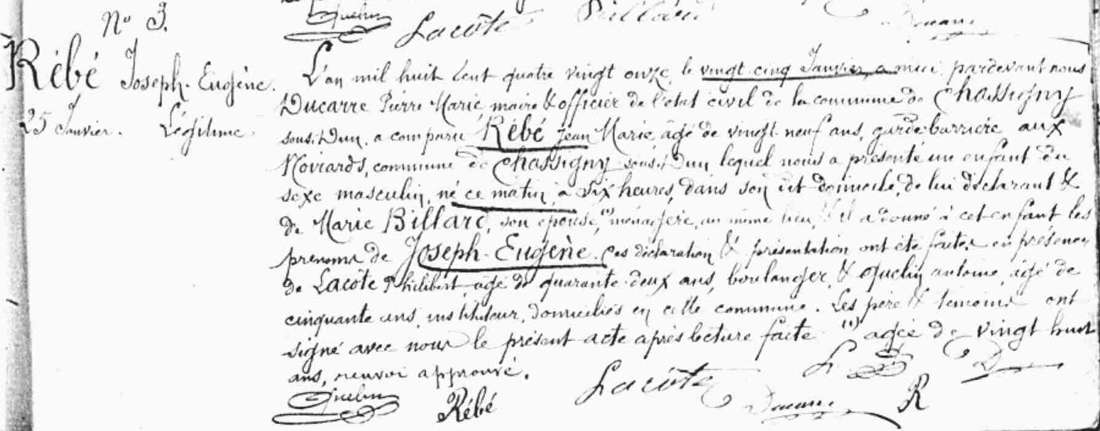 Quelin
Lacôte
Ducarre
No 3.
Rébé Joseph-Eugène.
25 Janvier. Légitime.
L'an mil huit cent quatre vingt onze, le vingt cinq Janvier, à midi pardevant nous
Ducarre Pierre Marie maire & officier de l'état civil de la commune de Chassigny
sous-Dun, a comparu Rébé Jean Marie, âgé de vingt-neuf ans, garde-barrière aux
Moirards, commune de Chassigny sous-Dun lequel nous a présenté un enfant du
sexe masculin, né ce matin, à six heures, dans son dit domicile, de lui déclarant &
de Marie Billard, son épouse, (1) ménagère, au même lieu & il a donné à cet enfant les
prénoms de Joseph-Eugène. Ces déclaration & présentation ont été faites en présence
de Lacôte Philibert, âgé de quarante-deux ans, boulanger, & Quelin antoine, âgé de
cinquante ans, instituteur, domiciliés en cette commune. Les père & témoins ont
signé avec nous le présent acte après lecture faite (1) agée de vingt huit
ans, renvoi approuvé.
L D
Quelin Rébé Lacôte Ducarre R